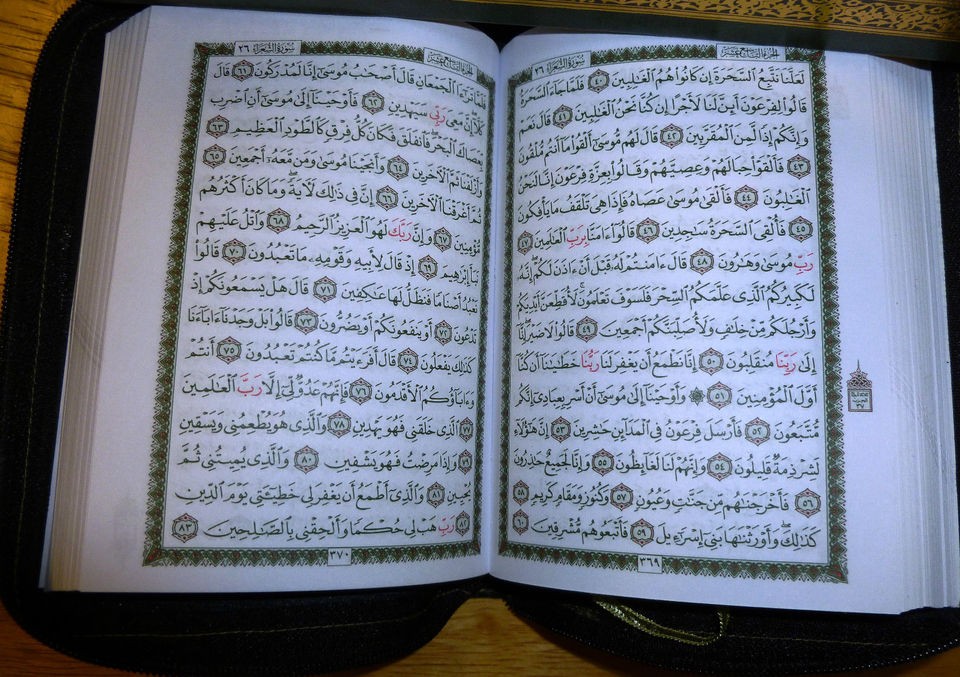 الجزء التاسع عشر
سورة الشعراء ٢٦
لَعَلَّنَا نَتَّبِعُ ٱلسَّحَرَةَ إِن كَانُوا۟ هُمُ ٱلْغَـٰلِبِينَ ٤٠ فَلَمَّا جَآءَ ٱلسَّحَرَةُ
قَالُوا۟ لِفِرْعَوْنَ أَئِنَّ لَنَا لَأَجْرًا إِن كُنَّا نَحْنُ ٱلْغَـٰلِبِينَ ٤١ قَالَ نَعَمْ
وَإِنَّكُمْ إِذًا لَّمِنَ ٱلْمُقَرَّبِينَ ٤٢ قَالَ لَهُم مُّوسَىٰٓ أَلْقُوا۟ مَآ أَنتُم مُّلْقُونَ
٤٣ فَأَلْقَوْا۟ حِبَالَهُمْ وَعِصِيَّهُمْ وَقَالُوا۟ بِعِزَّةِ فِرْعَوْنَ إِنَّا لَنَحْنُ
ٱلْغَـٰلِبُونَ ٤٤ فَأَلْقَىٰ مُوسَىٰ عَصَاهُ فَإِذَا هِىَ تَلْقَفُ مَا يَأْفِكُونَ
٤٥ فَأُلْقِىَ ٱلسَّحَرَةُ سَـٰجِدِينَ ٤٦ قَالُوٓا۟ ءَامَنَّا بِرَبِّ ٱلْعَـٰلَمِينَ ٤٧
رَبِّ مُوسَىٰ وَهَـٰرُونَ ٤٨ قَالَ ءَامَنتُمْ لَهُۥ قَبْلَ أَنْ ءَاذَنَ لَكُمْ ۖ إِنَّهُۥ
لَكَبِيرُكُمُ ٱلَّذِى عَلَّمَكُمُ ٱلسِّحْرَ فَلَسَوْفَ تَعْلَمُونَ ۚ لَأُقَطِّعَنَّ أَيْدِيَكُمْ
وَأَرْجُلَكُم مِّنْ خِلَـٰفٍ وَلَأُصَلِّبَنَّكُمْ أَجْمَعِينَ ٤٩ قَالُوا۟ لَا ضَيْرَ ۖ إِنَّآ
إِلَىٰ رَبِّنَا مُنقَلِبُونَ ٥٠ إِنَّا نَطْمَعُ أَن يَغْفِرَ لَنَا رَبُّنَا خَطَـٰيَـٰنَآ أَن كُنَّآ
أَوَّلَ ٱلْمُؤْمِنِينَ ٥١ ۞ وَأَوْحَيْنَآ إِلَىٰ مُوسَىٰٓ أَنْ أَسْرِ بِعِبَادِىٓ إِنَّكُم
مُّتَّبَعُونَ ٥٢ فَأَرْسَلَ فِرْعَوْنُ فِى ٱلْمَدَآئِنِ حَـٰشِرِينَ ٥٣ إِنَّ هَـٰٓؤُلَآءِ
لَشِرْذِمَةٌ قَلِيلُونَ ٥٤ وَإِنَّهُمْ لَنَا لَغَآئِظُونَ ٥٥ وَإِنَّا لَجَمِيعٌ حَـٰذِرُونَ
٥٦ فَأَخْرَجْنَـٰهُم مِّن جَنَّـٰتٍ وَعُيُونٍ ٥٧ وَكُنُوزٍ وَمَقَامٍ كَرِيمٍ ٥٨
كَذَٰلِكَ وَأَوْرَثْنَـٰهَا بَنِىٓ إِسْرَٰٓءِيلَ ٥٩ فَأَتْبَعُوهُم مُّشْرِقِينَ ٦٠
٣٦٩
الجزء التاسع عشر
سورة الشعراء ٢٦
فَلَمَّا تَرَٰٓءَا ٱلْجَمْعَانِ قَالَ أَصْحَـٰبُ مُوسَىٰٓ إِنَّا لَمُدْرَكُونَ ٦١ قَالَ
كَلَّآ ۖ إِنَّ مَعِىَ رَبِّى سَيَهْدِينِ ٦٢ فَأَوْحَيْنَآ إِلَىٰ مُوسَىٰٓ أَنِ ٱضْرِب
بِّعَصَاكَ ٱلْبَحْرَ ۖ فَٱنفَلَقَ فَكَانَ كُلُّ فِرْقٍ كَٱلطَّوْدِ ٱلْعَظِيمِ ٦٣
وَأَزْلَفْنَا ثَمَّ ٱلْـَٔاخَرِينَ ٦٤ وَأَنجَيْنَا مُوسَىٰ وَمَن مَّعَهُۥٓ أَجْمَعِينَ ٦٥
ثُمَّ أَغْرَقْنَا ٱلْـَٔاخَرِينَ ٦٦ إِنَّ فِى ذَٰلِكَ لَـَٔايَةً ۖ وَمَا كَانَ أَكْثَرُهُم
مُّؤْمِنِينَ ٦٧ وَإِنَّ رَبَّكَ لَهُوَ ٱلْعَزِيزُ ٱلرَّحِيمُ ٦٨ وَٱتْلُ عَلَيْهِمْ
نَبَأَ إِبْرَٰهِيمَ ٦٩ إِذْ قَالَ لِأَبِيهِ وَقَوْمِهِۦ مَا تَعْبُدُونَ ٧٠ قَالُوا۟
نَعْبُدُ أَصْنَامًا فَنَظَلُّ لَهَا عَـٰكِفِينَ ٧١ قَالَ هَلْ يَسْمَعُونَكُمْ إِذْ
تَدْعُونَ ٧٢ أَوْ يَنفَعُونَكُمْ أَوْ يَضُرُّونَ ٧٣ قَالُوا۟ بَلْ وَجَدْنَآ ءَابَآءَنَا
كَذَٰلِكَ يَفْعَلُونَ ٧٤ قَالَ أَفَرَءَيْتُم مَّا كُنتُمْ تَعْبُدُونَ ٧٥ أَنتُمْ
وَءَابَآؤُكُمُ ٱلْأَقْدَمُونَ ٧٦ فَإِنَّهُمْ عَدُوٌّ لِّىٓ إِلَّا رَبَّ ٱلْعَـٰلَمِينَ
٧٧ ٱلَّذِى خَلَقَنِى فَهُوَ يَهْدِينِ ٧٨ وَٱلَّذِى هُوَ يُطْعِمُنِى وَيَسْقِينِ
٧٩ وَإِذَا مَرِضْتُ فَهُوَ يَشْفِينِ ٨٠ وَٱلَّذِى يُمِيتُنِى ثُمَّ
يُحْيِينِ ٨١ وَٱلَّذِىٓ أَطْمَعُ أَن يَغْفِرَ لِى خَطِيٓـَٔتِى يَوْمَ ٱلدِّينِ
٨٢ رَبِّ هَبْ لِى حُكْمًا وَأَلْحِقْنِى بِٱلصَّـٰلِحِينَ ٨٣
٣٧٠